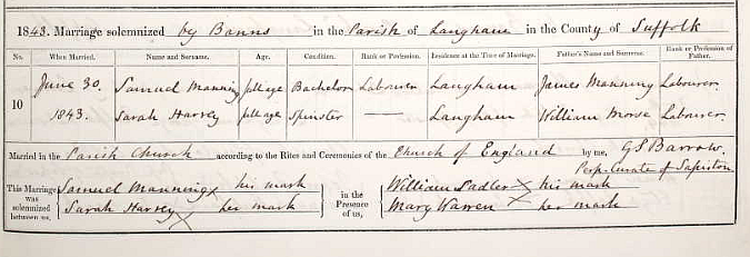 1843. Marriage solemnized by Banns in the Parish of Langham in the County of Suffolk
No. When Married. Name and Surname. Age. Condition. Rank or Profession. Residence at the Time of Marriage. Father's Name and Surname. Rank or Profession of Father.
10
June 30. Samuel Manning full age Bachelor Labourer Langham James Manning Labourer.
1843. Sarah Harvey full age Spinster — Langham William Morse Labourer.
Married in the Parish Church according to the Rites and Ceremonies of the Church of England by me, GS Barrow.
Perp. Curate of Sapiston
This Marriage was solemnized between us,
Samuel Manning X his mark
Sarah Harvey X her mark
in the Presence of us,
William Sadler X his mark
Mary Warren X her mark